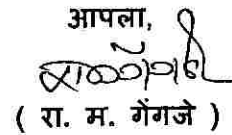 आपला,
( रा. म. गेंगजे )